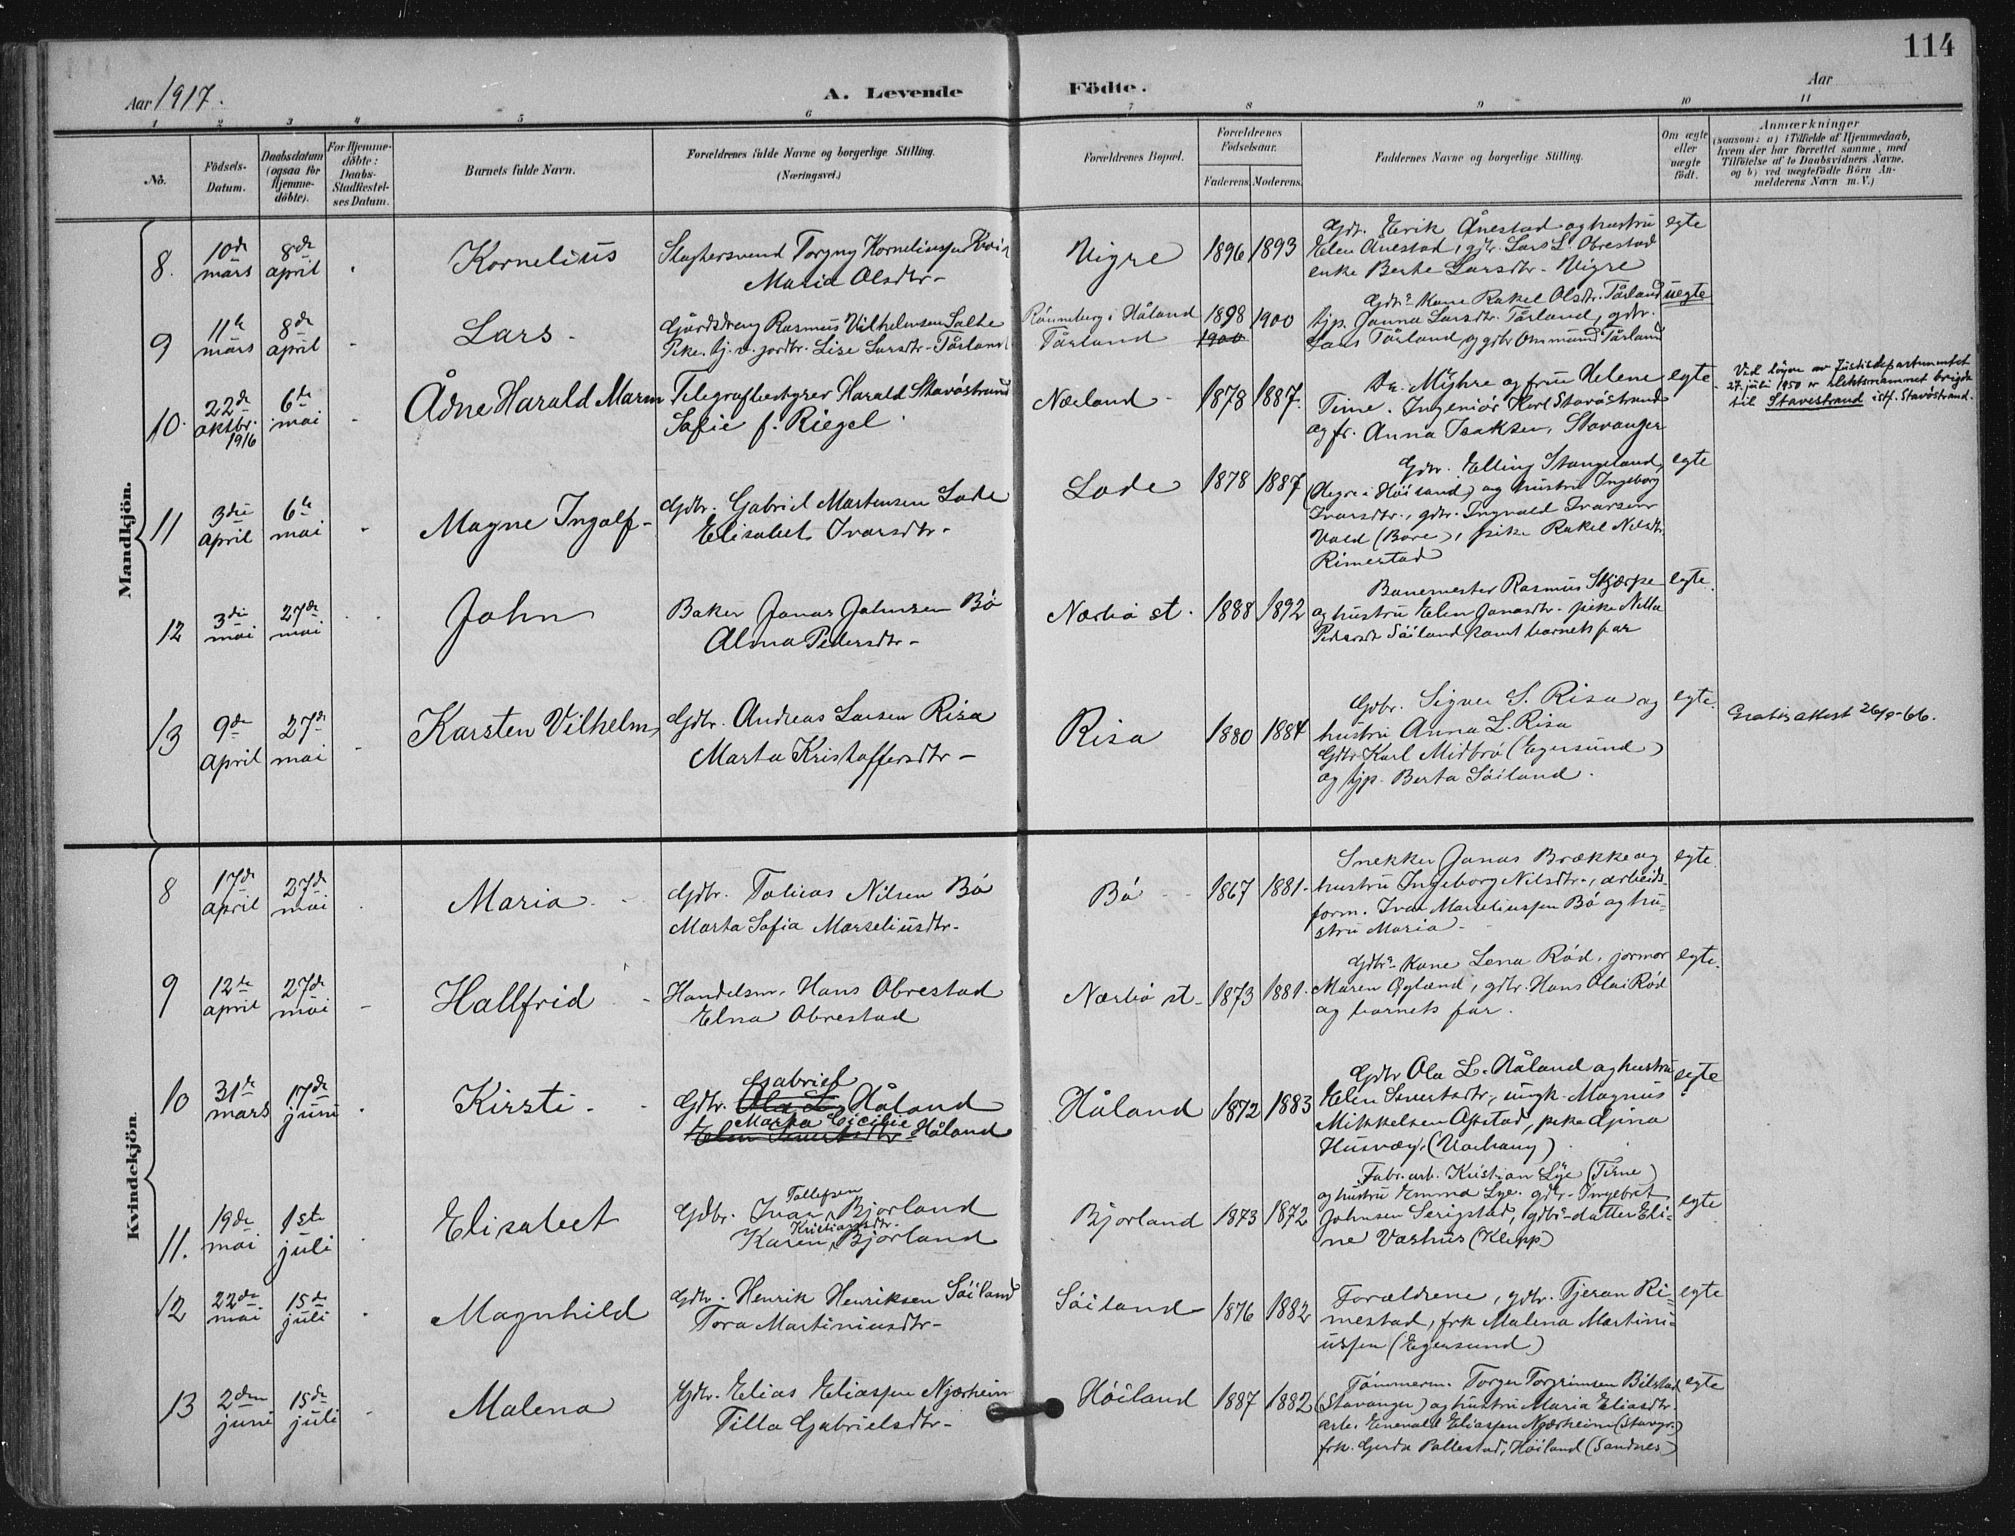 114
Aar 1917.
A. Levende Födte.
Aar
1 2 3 4 5 6 7 8 9 10 11
No.
Födsels-Datum.
Daabsdatum (ogsaa for Hjemmedöbte).
For Hjemmedöbte: Daabs-Stadfæstelses Datum.
Barnets fulde Navn.
Forældrenes fulde Navne og borgerlige Stilling. (Næringsvei.)
Forældrenes Bopæl.
Forældrenes Födselsaar.
Faderens. Moderens.
Faddernes Navne og borgerlige Stilling.
Om ægte eller uægte födt.
Anmærkninger
(saasom: a) i Tilfælde af Hjemmedaab,
hvem der har forrettet samme, med
Tilföielse af to Daabsvidners Navne,
og b) ved uægtefödte Börn Anmelderens Navn m. V.)
Mandkjön.
8. 10de mars 8de april Kornelius
Slagtersvend Torgny Korneliussen
Maria Olsdtr.
Nigre 1896 1893
Gdr. Eirik Ånestad og hustru
Elen Ånestad, gdr. Lars L. Obrestad
enke Berte Larsdtr. Nigre
egte
9 11te mars 8de april Lars
Gårdsdreng Rasmus Vilhelmsen Salte
Pike. tj. v. jordbr. Lise Larsdtr. Tårland
Rønneberg i Håland
Tårland
1898 1900 1900
Gdr. Kone Rakel Olsdtr. Tårland
tjp. Janna Larsdtr. Tårland, gdr.
Lars Tårland og gdbr Ommund Tårland
uegte
10. 22de oktbr. 1916 6te mai Ådne Harald Marm
Telegrafbestyrer Harald Stavøstrand
Sofie f. Riegel
Nærland 1878 1887.
Dr. Myhre og frue Helene
Time. Ingeniør Karl Stavøstrand
og fr. Anna Isaksen, Stavanger
egte
Ved løyve av Justisdepartementet
27. juli 1950 er slektsnamnet brigda
til Stavestrand istf. Stavøstrand.
11 3die april 6te mai Magne Ingolf
Gdbr. Gabriel Martensen Lode
Elisabet Ivarsdtr.
Lode 1878 1887
Gdbr. Elling Stangeland
(Hegre i Høiland) og hustru Ingeborg
Ivarsdtr., gdbr. Ingvald Ivarsen
Vold (Bore), pike Rakel Nilsdtr.
Rimestad
egte
12 3die mai 27de mai John
Baker Jonas Johnsen Bø
Alma Pedersdtr.
Nærbø st. 1888 1892
Banemester Rasmus Skjærpe
og hustru Elen Jonasdtr. pike Nilla
Pedersdt Søiland samt barnets far
egte.
13 9de april 27de mai Karsten Vilhelm
Gdbr. Andreas Larsen Risa
Marta Kristoffersdtr.
Risa 1880 1884
Gdbr. Signer S. Risa og
hustru Anna L. Risa
Gdbr Karl Midbrø (Egersund)
og tjp. Berta Søiland.
egte.
Gratisattest 26/9-66.
Kvindekjön.
8 17de april 27de mai Maria
Gdbr. Tobias Nilsen Bø
Marta Sofia Marseliusdtr.
Bø 1867 1881.
Snekker Jonas Brække og
hustru Ingeborg Nilsdtr., arbeids-
form. Ivar Marseliussen Bø og hu-
stru Maria
egte
9 12te april 27de mai Hallfrid
Handelsm. Hans Obrestad
Elna Obrestad
Nærbø st. 1873 1881.
Gdbr. Kone Lena Rød, jormor
Maren Opland, gdbr. Hans Olai Rød
og barnets far.
egte.
10 31te mars 17de juni Kirsti
Gabriel
Gdbr. Ola L. Håland
Marta Cicilie
Elen Sivertsdtr Håland
Håland 1872 1883
Gdbr Ola L. Håland og hustru
Elen Sivertsdtr, ungk. Magnus
Mikkelsen Opstad, pike Gjina
Husvæg (Varhaug)
egte
11. 19de mai 1ste juli Elisabet
Tollefsen
Gdbr. Ivar Bjorland
Kristiansdtr.
Karen Bjorland
Bjorland 1873 1872
Fabr. arb. Kristian Lye (Time)
og hustru Emma Lye. gdbr. Ingebret
Johnsen Serigstad, gdbr-datter Eli-
neVærhus (Klepp)
egte
12 22de mai 15de juli Magnhild
Gdbr. Henrik Henriksen Søiland
Tora Martiniusdtr.
Søiland 1876 1882
Forældrene, gdbr. Tjeran Ri-
mestad, frk Malena Martini-
ussen (Egersund)
egte
13 2den juni 15de juli Malena
Gdbr. Elias Eliassen Njærheim
Tilla Gabrielsdtr.
Høiland 1887 1882
Tømmerm. Torger Torgrimsen Bilstad
(Stavanger) og hustru Maria Eliasdtr.
arb. Enevald Eliassen Njærheim (Stavgr.)
frk. Gerda Pallestad, Høiland (Sandnes)
egte